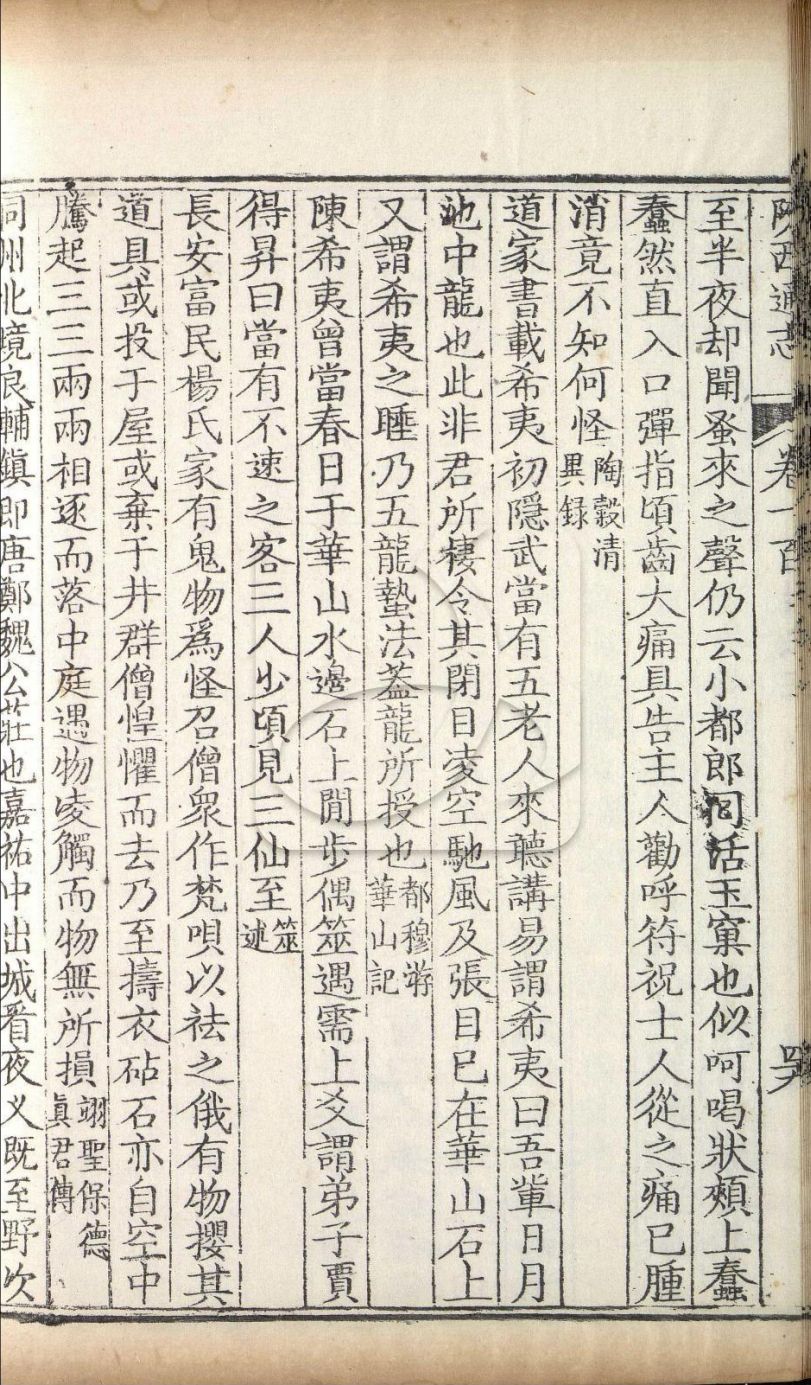 陝西通志 卷一百
至半夜却聞蚤來之聲仍云小都郎回活玉窠也似呵喝狀頰上蠢
蠢然直入口彈指頃齒大痛具告主人勸呼符祝士人從之痛已腫
消竟不知何怪陶穀清異録
道家書載希夷初隱武當有五老人來聽講易謂希夷曰吾輩日月
池中龍也此非君所棲令其閉目凌空馭風及張目已在華山石上
又謂希夷之睡乃五龍蟄法葢龍所授也都穆游華山記
陳希夷曾當春日于華山水邊石上閒步偶筮遇需上爻謂弟子賈
得昇曰當有不速之客三人少頃見三仙至筮述
長安富民楊氏家有鬼物爲怪召僧衆作梵唄以祛之俄有物攖其
道具或投于屋或棄于井群僧惶懼而去乃至擣衣砧石亦自空中
騰起三三兩兩相逐而落中庭遇物凌觸而物無所損翊聖保德真君傳
同州北境良輔鎮即唐鄭魏公莊也嘉祐中出城看夜乂既至野次